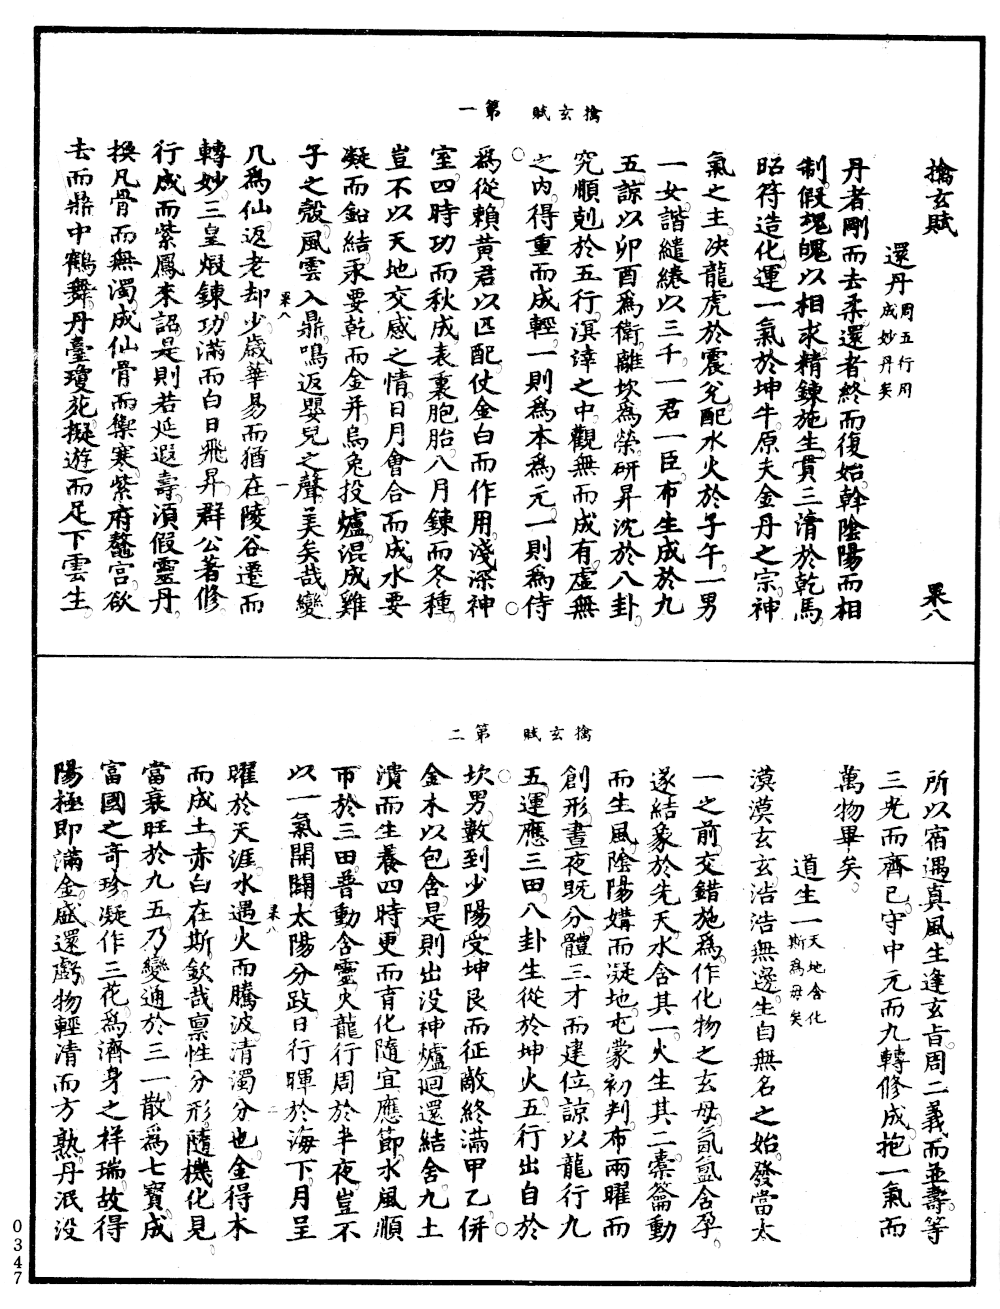 擒玄賦　第一
擒玄賦　　果八
還丹周五行用成妙丹矣
丹者剛而去柔還者終而復始幹陰陽而相
制假魂魄以相求精鍊施生貫三清於乾馬
昭符造化運一氣於坤牛原夫金丹之宗神
氣之主決龍虎於震兌配水火於子午一男
一女諧繾綣以三千一君一臣布生成於九
五諒以卯酉爲衛離坎爲榮研昇沈於八卦
究順剋於五行溟涬之中觀無而成有虛無
之內得重而成輕一則爲本爲元一則爲侍
爲從賴黃君以匹配仗金白而作用淺深神
室四時功而秋成表裏胞胎八月鍊而冬種
豈不以天地交感之情日月會合而成水要
凝而鉛結汞要乾而金并烏兔投爐混成雞
子之殼風雲入鼎鳴返嬰兒之聲美矣哉變
果八　一
凡爲仙返老却少歲華易而猶在陵谷遷而
轉妙三皇煆鍊功滿而白日飛昇群公著修
行成而紫鳳來詔是則若延遐壽須假靈丹
換凡骨而無濁成仙骨而禦寒紫府鼇宮欲
去而鼎中鶴舞丹臺瓊苑擬遊而足下雲生
擒玄賦　第二
所以宿遇真風生逢玄旨周二義而並壽等
三光而齊已守中元而九轉修成抱一氣而
萬物畢矣
道生一天地含化斯爲母矣
漠漠玄玄浩浩無邊生自無名之始發當太
一之前交錯施爲作化物之玄母氤氳含孕
遂結象於先天水含其一火生其二橐籥動
而生風陰陽媾而凝地屯蒙初判布兩曜而
創形晝夜既分體三才而建位諒以龍行九
五運應三田八卦生從於坤火五行出自於
坎男數到少陽受坤艮而征敵終滿甲乙併
金木以包含是則出没神爐迴還結舍九土
潰而生養四時更而育化隨宜應節水風順
帀於三田晋動含靈火龍行周於半夜豈不
以一氣開闢太陽分政日行暉於海下月呈
果八　二
曜於天涯水遇火而騰波清濁分也金得木
而成土赤白在斯欽哉禀性分形隨機化見
當衰旺於九五乃變通於三一散爲七寶成
富國之奇珍凝作三花爲濟身之祥瑞故得
陽極即滿金盛還虧物輕清而方熟丹泯没
0347